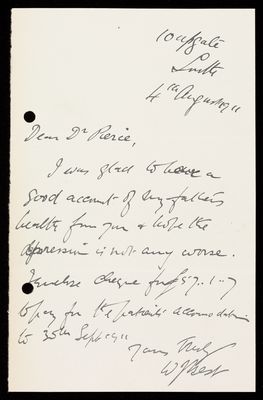 10 Upgate
Louth
4th August 1911
Dear Dr Pierce,
I was glad to have a
good account of my father's
health from you & hope the
depression is not any worse.
I enclose cheque for £57.1.7
to pay for the patient's accomodation
to 30th Sept 1911
Yours Truly
W J Best